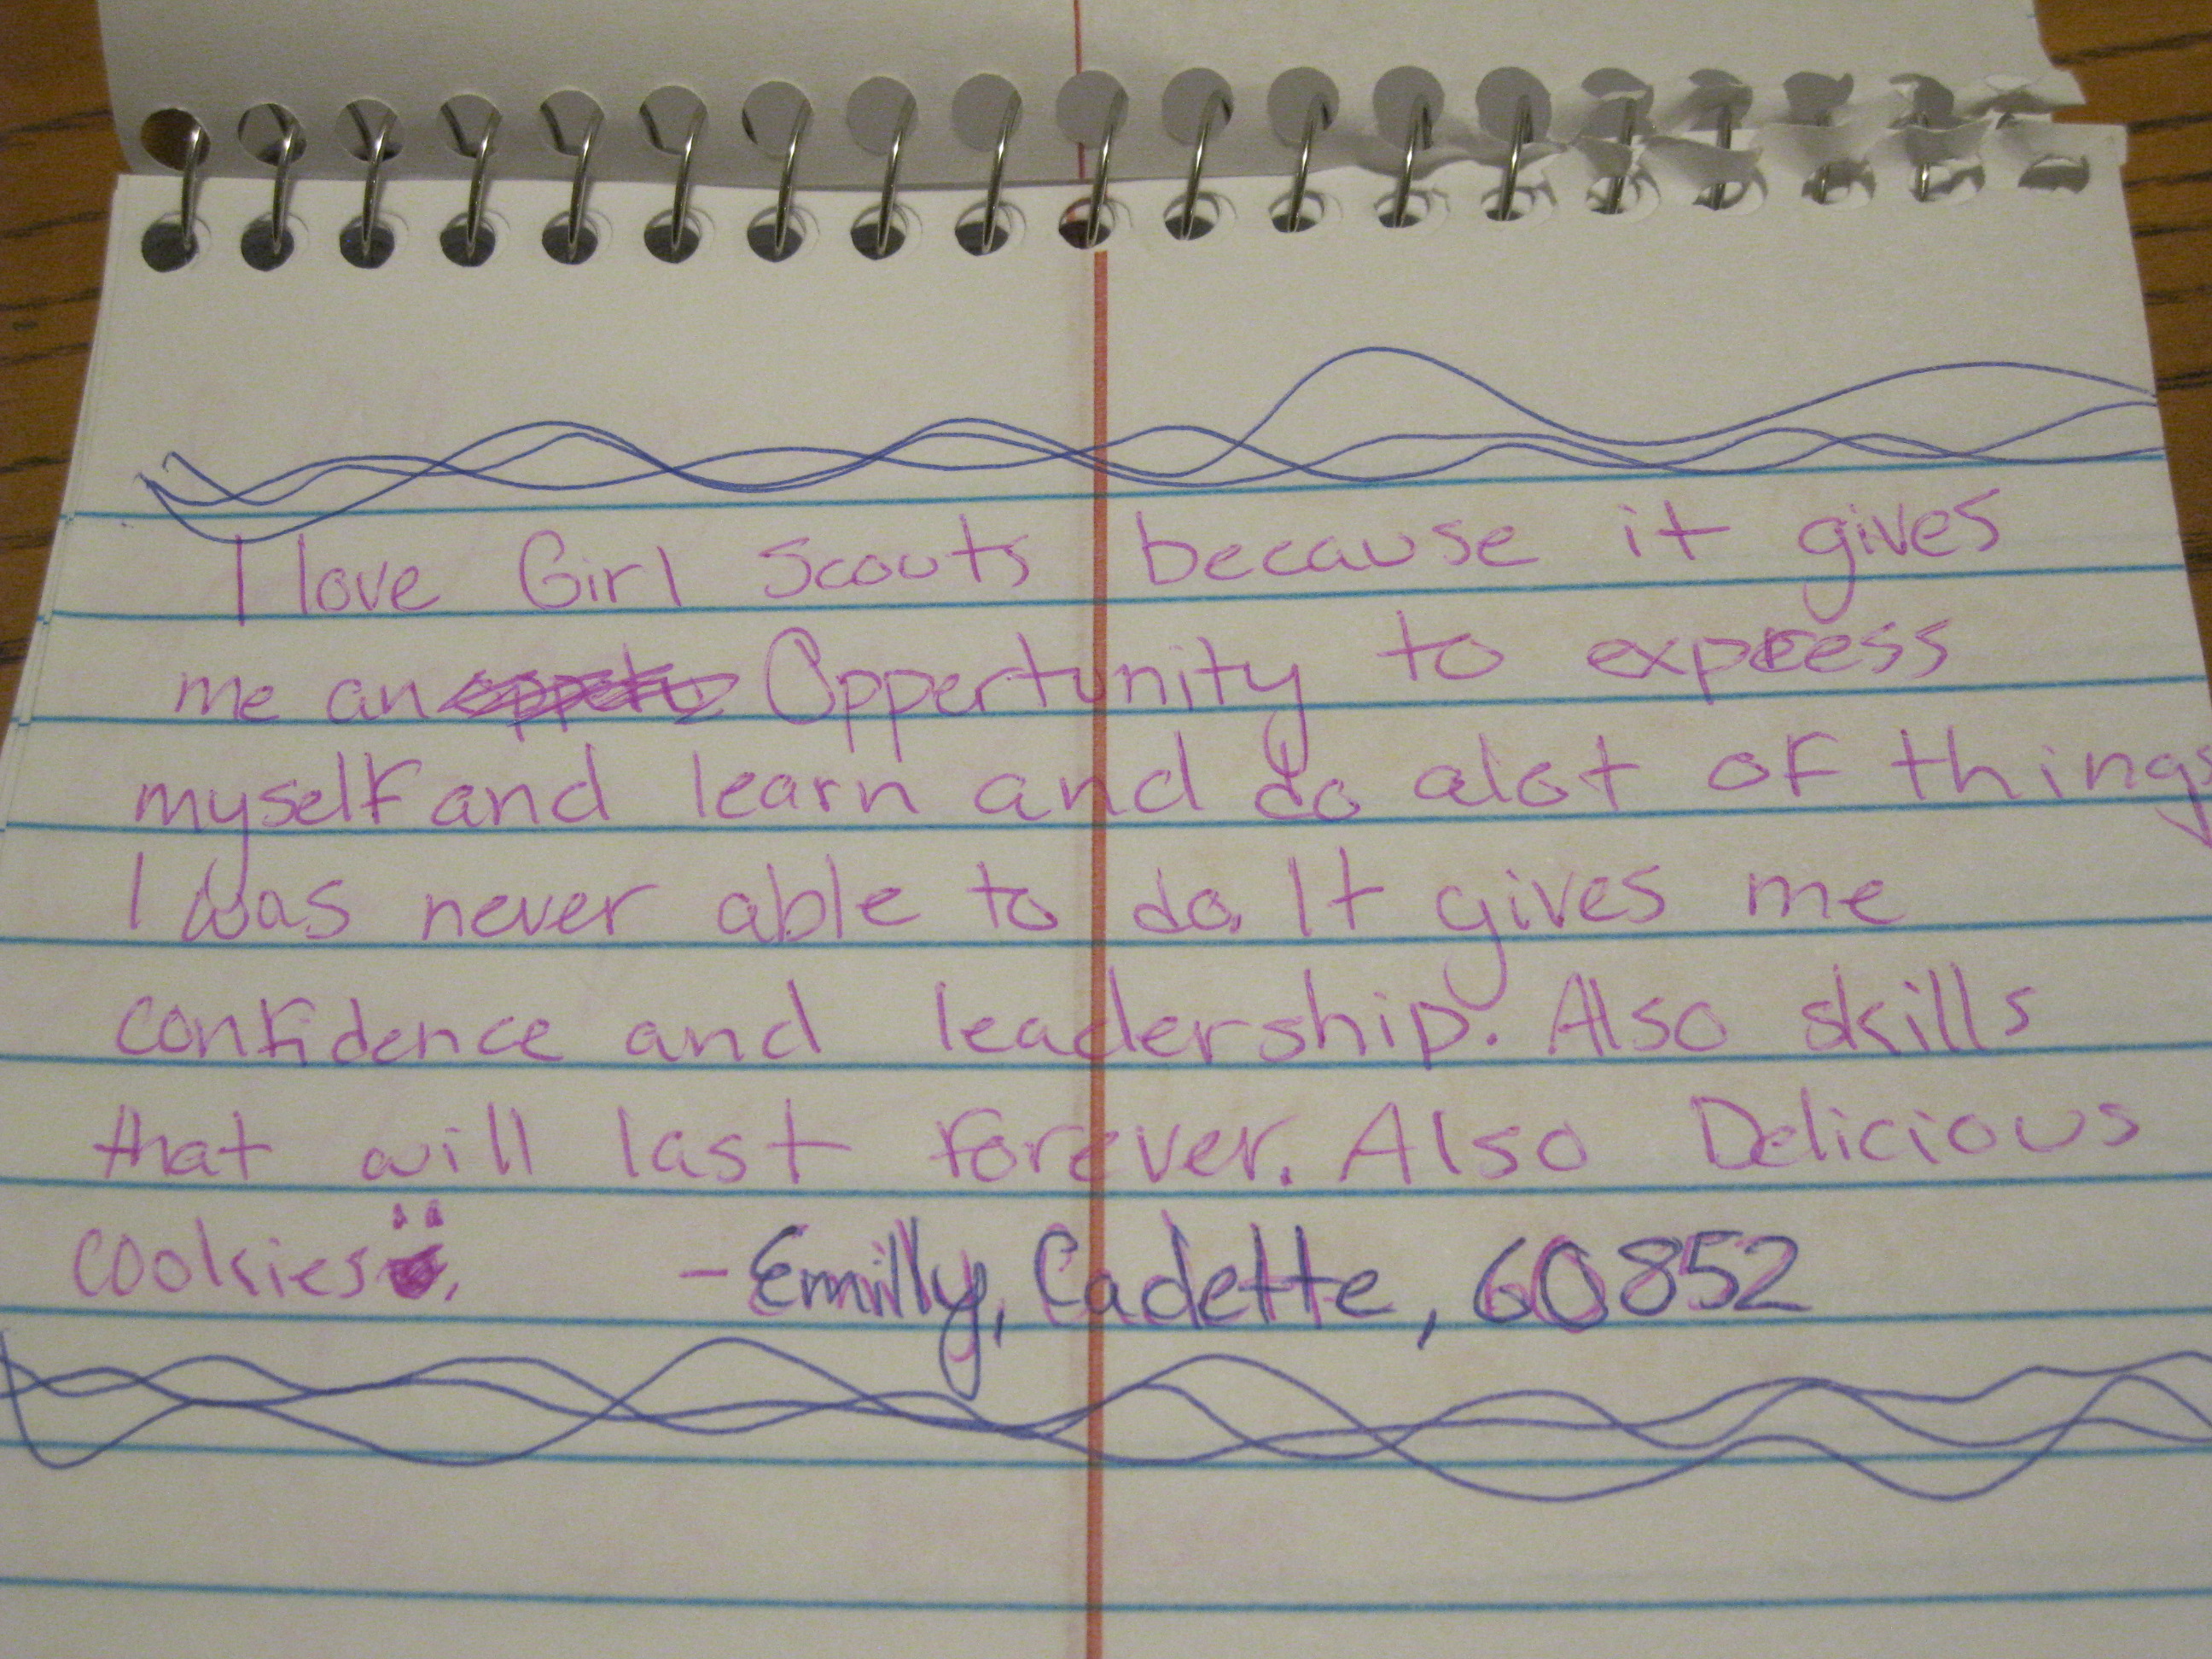 I love Girl Scouts because it gives
me an Oppertunity to express
myself and learn and do alot of things
I was never able to do. It gives me
confidence and leadership. Also skills
that will last forever. Also Delicious
cookies.   -Emilly, Cadette, 60852